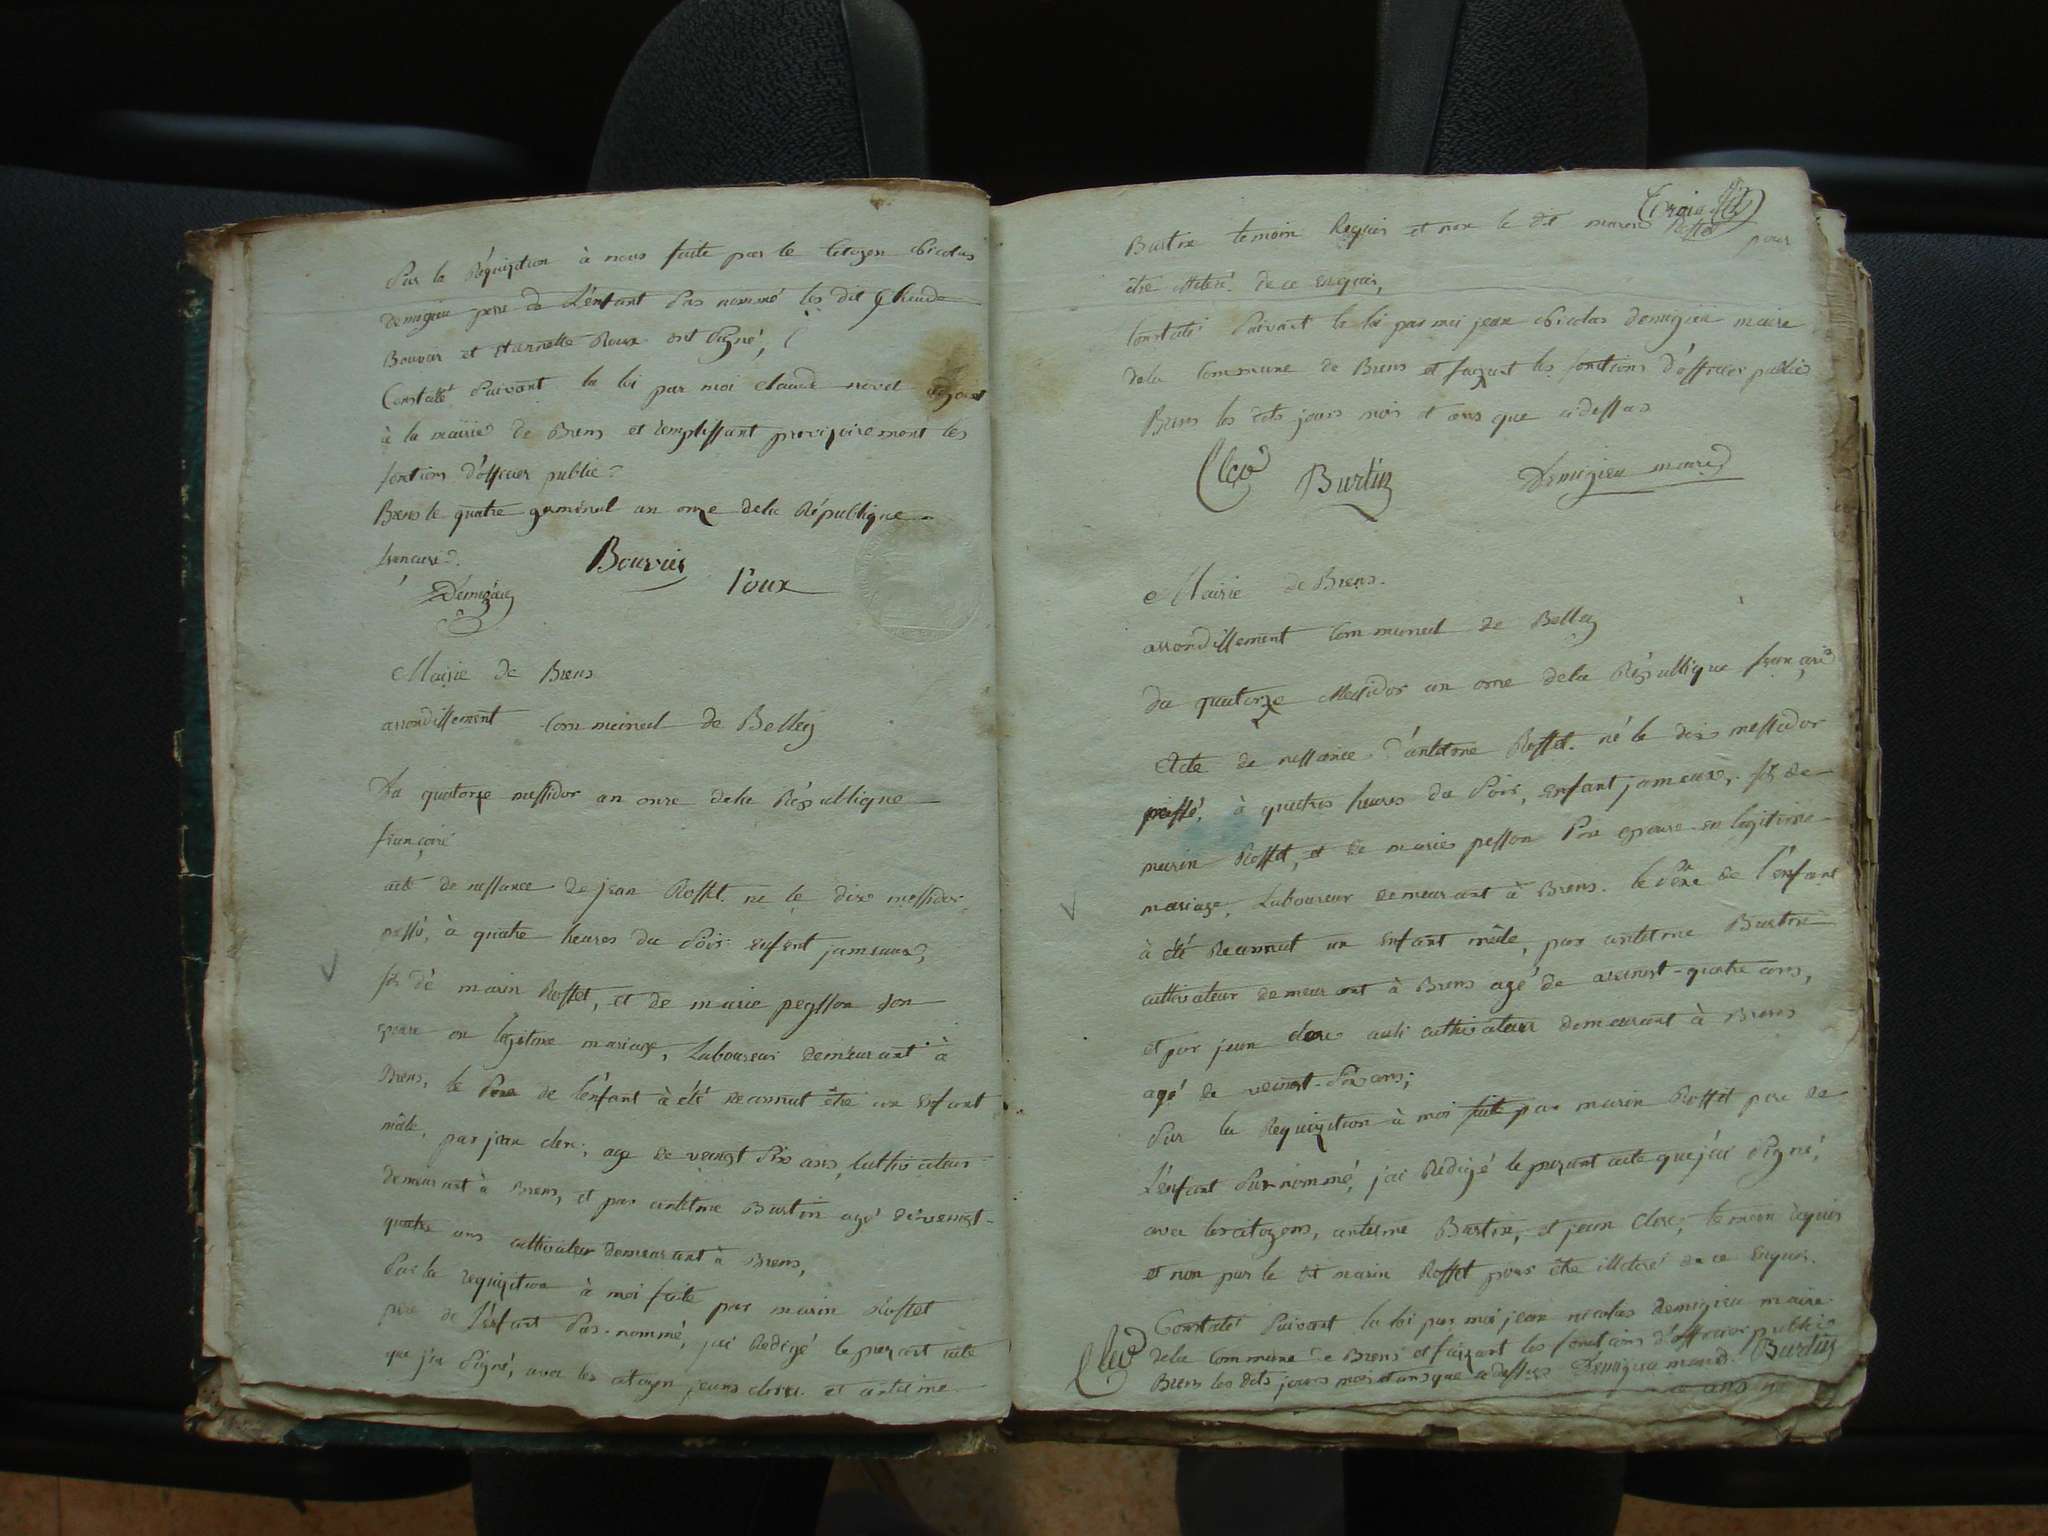 Sur la Réquiзition à nous faite par le Citoyen Nicolas
demigieu pere de L'enfant Sus nommé les dit Claude
Bouvier et Etiennette Roux ont Signé,
Constaté Suivant la loi par moi claude novel adjoint
à la mairie de Brens et Remplissant provizoirement les
fontions d'officier public
Brens le quatre germinal an onze dela République
francaise
Bouvier
Roux
Demigieu
Mairie de Brens
arrondissement Communal de Belley
Du quatorze messidor an onze dela République
françaire
acte de nessance de jean Rosset né le dix messidor
passé, à quatre heures du Soir enfent jameaux,
fils dé marin Rosset, et de marie peysson Son
epouse en legitime mariage, Laboureur demeurant à
Brens, le Sexe de l'enfant à été reconnut être un enfant
mâle, par jean clerc, age de veingt Six ans, cultivateur
demeurant à Brens, et par antelme Burtin agé dé veingt-
quatre ans cultivateur demeurant à Brens,
Sur la requizition à moi faite par marin Rosset
pere de L'enfant Sus-nommé, jai Redigé le prezent acte
que j'ai Signé, avec les citoyen jean clerc et antelme
Burtin temoin Requis et non le dit marin Rosset pour
être illiteré de ce enquis,
Constaté Suivant la loi par moi jean Nicolas demigieu maire
dela Commune de Brens et faizant les fonctions d'officier public
Brens les dits jours mois et ans que cidessus
Clerc
Burtin
Demigieu maire
Mairie de Brens.
arrondissement Communal de Belley
du quatorze Messidor an onze dela République françaire
Acte de nessance d'antelme Rosset. né le dix messidor
passé, à quatres heures du Soir, enfant jameaux, fils de
marin Rosset, et de marie pesson Son epouse en legitime
mariage, Laboureur demeurant à Brens. le Sexe de l'enfant
à été Reconnut un enfant mâle, par antelme Burtin
cultivateur demeurant à Brens agé de veeingt-quatre ans,
et par jean clerc aussi cultivateur demeurant à Brens
agé de veeingt-Six ans;
Sur la Requizition à moi faite par marin Rosset pere de
L'enfant Sus-nommé, j'ai Redigé le prezent acte que j'ai Signé,
avec les citoyens, antelme Burtin, et jean clerc, temoin requis
et non par le dit marin Rosset pour être illeteré de ce Enquis.
Constaté Suivant la loi par moi jean nicolas demigieu maire
dela Commune de Brens et faizant les fonctions d'officier public
Brens les dits jours mois et ans que cidessus Demigieu maire Burtin
Clerc